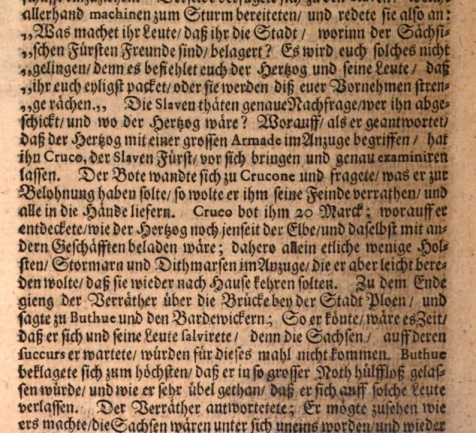 allerhand machinen zum Sturm bereiteten/ und redete sie also an:
„Was machet ihr Leute/ daß ihr die Stadt/ worinn der Sächsi-
„schen Fürsten Freunde sind/ belagert? Es wird euch solches nicht
„gelingen/ denn es befiehlet euch der Hertzog und seine Leute/ daß
„ihr euch eyligst packet/ oder sie werden diß euer Vornehmen stren-
„ge rächen.„ Die Slaven thäten genaue Nachfrage/ wer ihn abge-
schickt/ und wo der Hertzog wäre? Worauff/ als er geantwortet/
daß der Hertzog mit einer grossen Armade im Anzuge begriffen/ hat
ihn Cruco, der Slaven Fürst/ vor sich bringen und genau examiniren
lassen. Der Bote wandte sich zu Crucone und fragete/ was er zur
Belohnung haben solte/ so wolte er ihm seine Feinde verrathen/ und
alle in die Hände liefern. Cruco bot ihm 20 Marck; worauff er
entdeckete/ wie der Hertzog noch jenseit der Elbe/ und daselbst mit an-
dern Geschäfften beladen wäre; dahero allein etliche wenige Hol-
sten/ Stormarn und Dithmarsen im Anzuge/ die er aber leicht bere-
den wolte/ daß sie wieder nach Hause kehren solten. Zu dem Ende
gieng der Verräther über die Brücke bey der Stadt Ploen/ und
sagte zu Buthue und den Bardewickern; So er könte/ wäre es Zeit/
daß er sich und seine Leute salvirete/ denn die Sachsen/ auff deren
succurs er wartete/ würden für dieses mahl nicht kommen. Buthue
beklagete sich zum höchsten/ daß er in so grosser Noth hülffloß gelas-
sen würde/ und wie er sehr übel gethan/ daß er sich auff solche Leute
verlassen. Der Verräther antwortetete; Er mögte zusehen wie
ers machte/ die Sachsen wären unter sich uneins worden/ und wieder